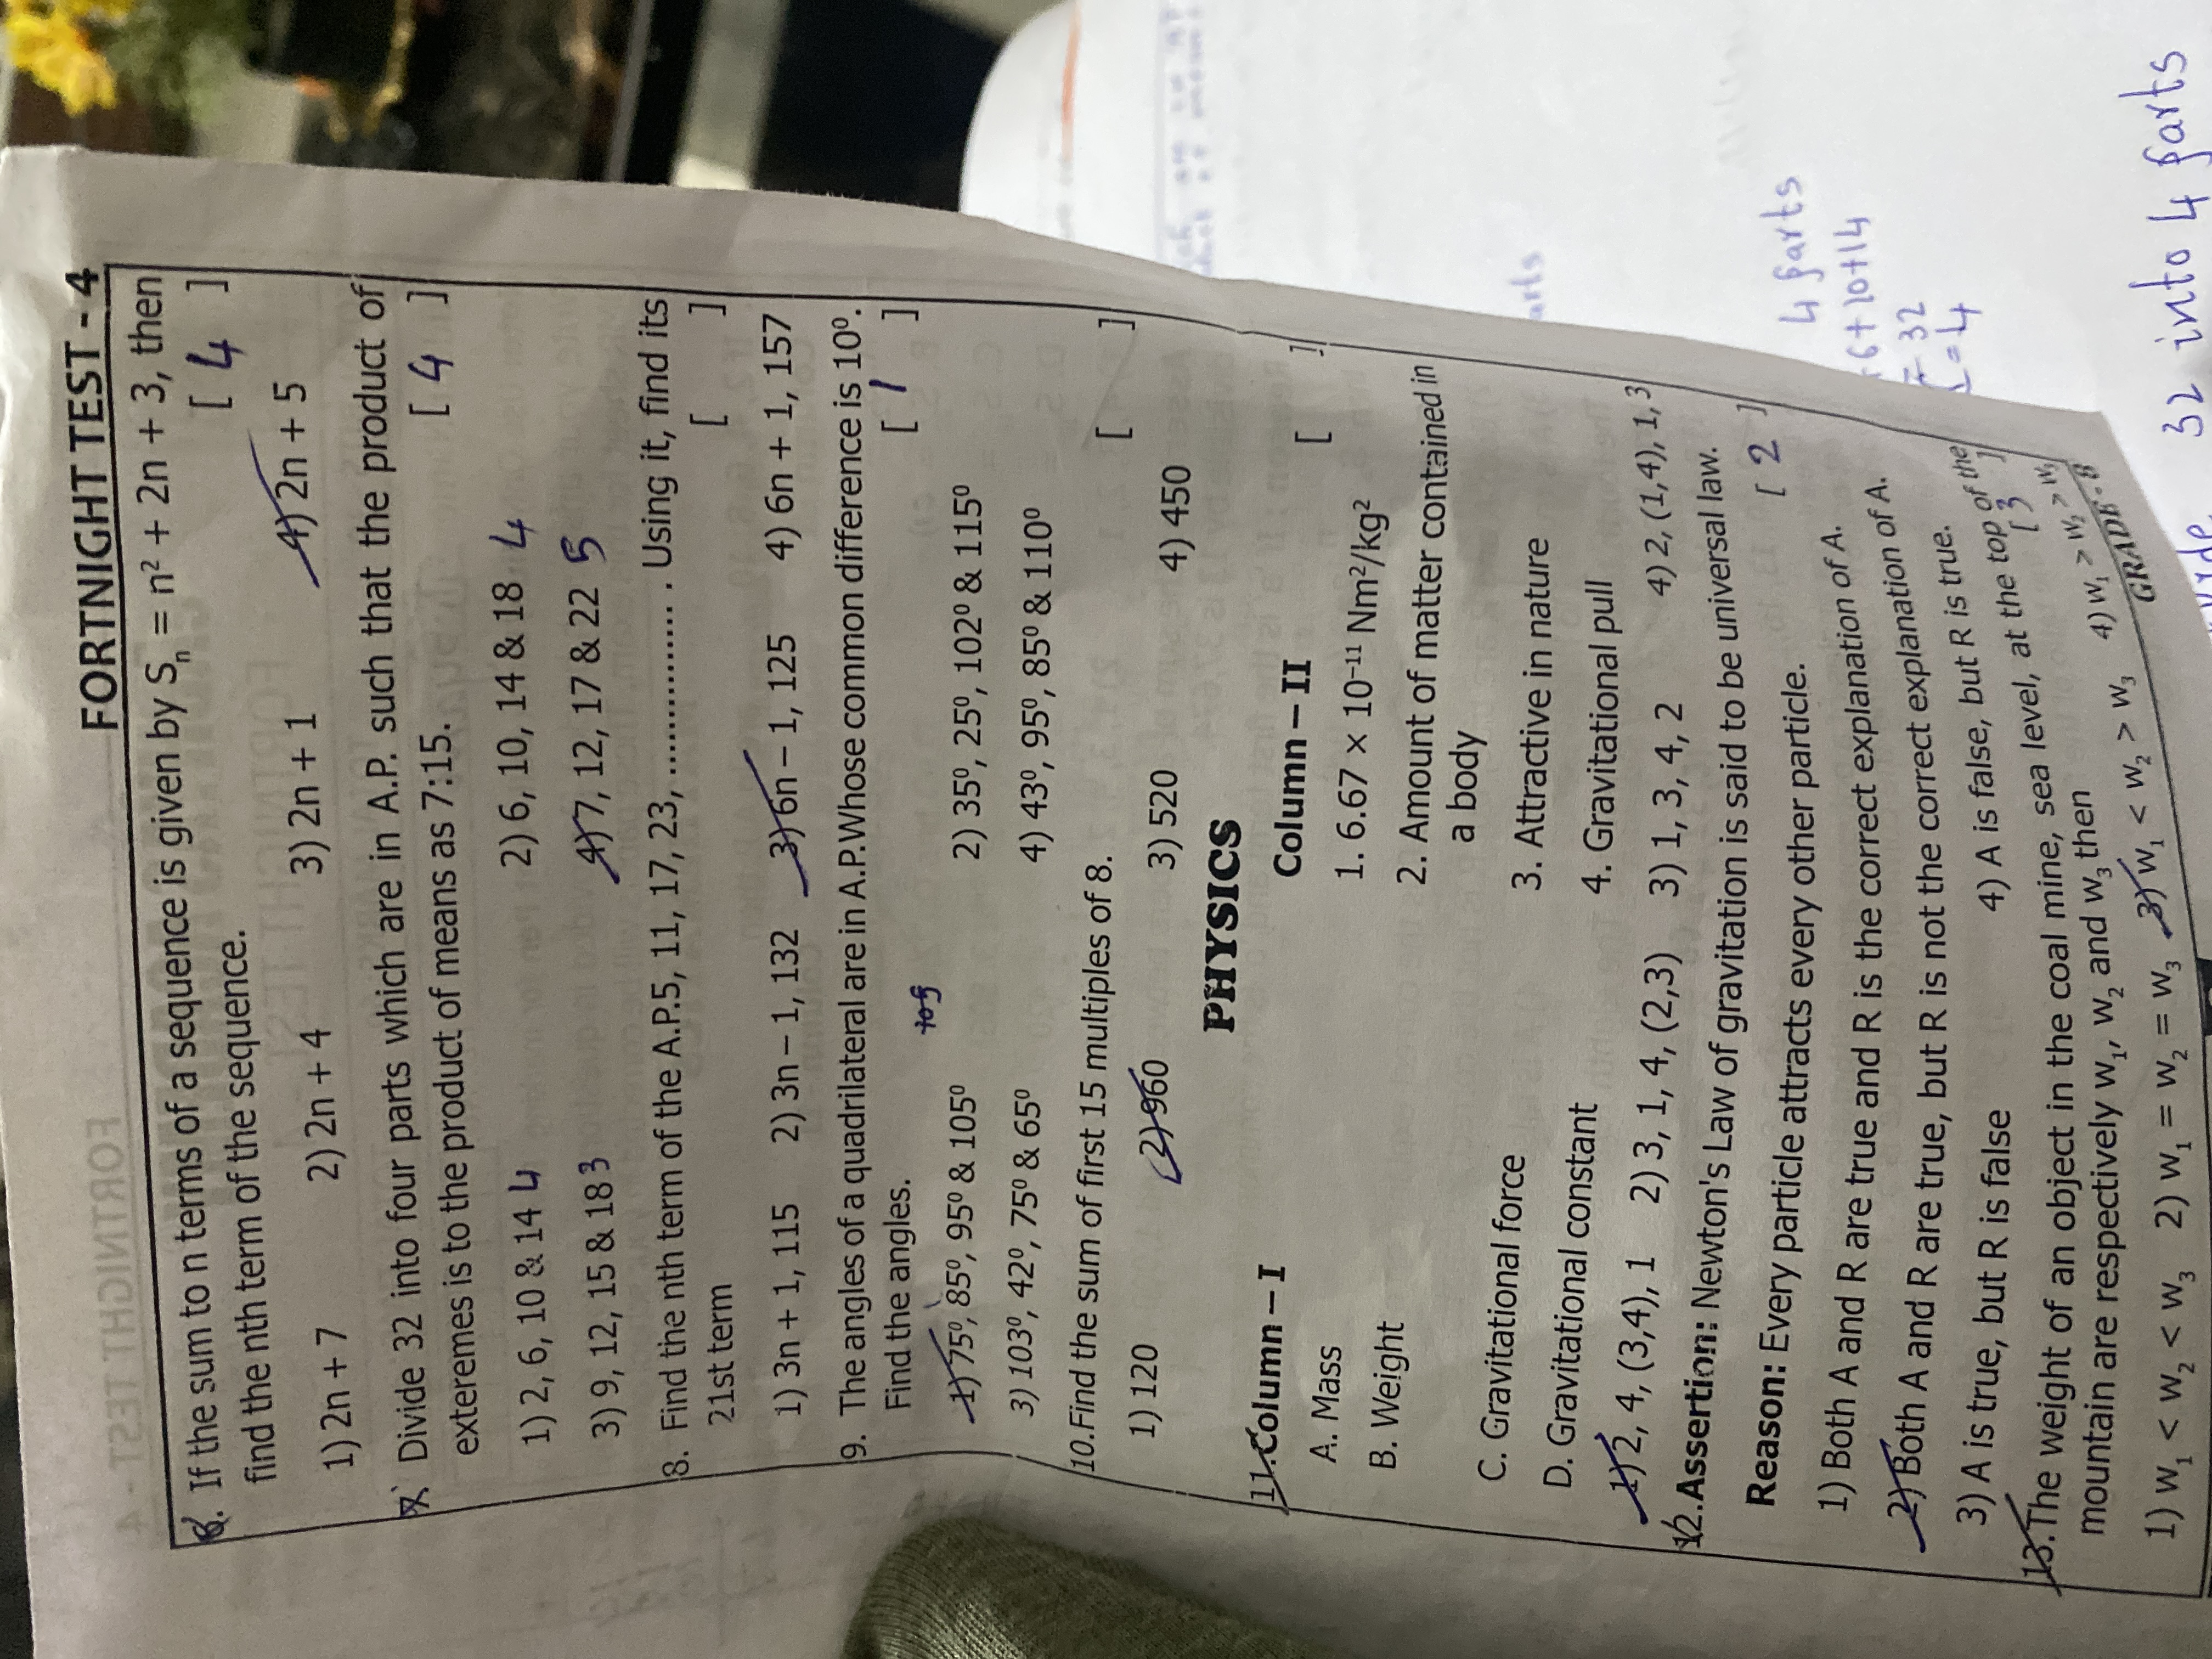 FORTNIGHT TEST - 4
6. If the sum to n terms of a sequence is given by Sn = n² + 2n + 3, then
find the nth term of the sequence. [ 4 ]
1) 2n + 7 2) 2n + 4 3) 2n + 1 4) 2n + 5
Divide 32 into four parts which are in A.P. such that the product of
exteremes is to the product of means as 7:15. [ 4 ]
1) 2, 6, 10 & 14 4 2) 6, 10, 14 & 18 4
3) 9, 12, 15 & 18 3 4) 7, 12, 17 & 22 5
8. Find the nth term of the A.P.5, 11, 17, 23, ................ . Using it, find its
21st term [ ]
1) 3n + 1, 115 2) 3n – 1, 132 3) 6n – 1, 125 4) 6n + 1, 157
9. The angles of a quadrilateral are in A.P.Whose common difference is 10⁰.
Find the angles. [ 1 ]
1) 75⁰, 85⁰, 95⁰ & 105⁰ 2) 35⁰, 25⁰, 102⁰ & 115⁰
3) 103⁰, 42⁰, 75⁰ & 65⁰ 4) 43⁰, 95⁰, 85⁰ & 110⁰
10.Find the sum of first 15 multiples of 8. [ ]
1) 120 2) 960 3) 520 4) 450
PHYSICS
11.Column – I Column – II [ ]
A. Mass 1. 6.67 × 10⁻¹¹ Nm²/kg²
B. Weight 2. Amount of matter contained in
a body
C. Gravitational force 3. Attractive in nature
D. Gravitational constant 4. Gravitational pull
1) 2, 4, (3,4), 1 2) 3, 1, 4, (2,3) 3) 1, 3, 4, 2 4) 2, (1,4), 1, 3
12.Assertion: Newton's Law of gravitation is said to be universal law.
Reason: Every particle attracts every other particle. [ 2 ]
1) Both A and R are true and R is the correct explanation of A.
2) Both A and R are true, but R is not the correct explanation of A.
3) A is true, but R is false 4) A is false, but R is true.
13.The weight of an object in the coal mine, sea level, at the top of the
mountain are respectively w₁, w₂ and w₃ then [ 3 ]
1) w₁ < w₂ < w₃ 2) w₁ = w₂ = w₃ 3) w₁ < w₂ > w₃ 4) w₁ > w₂ > w₃
GRADE - 8
4 parts
6+10+14
32
=4
32 into 4 parts